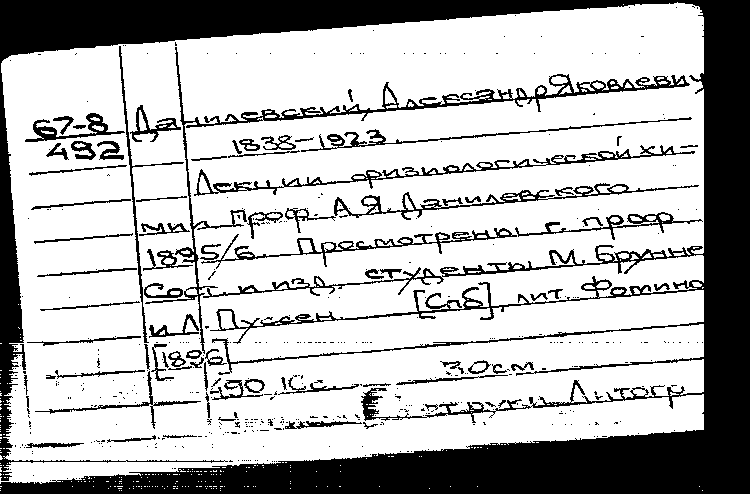 67-8
492
Данилевский, Александр Яковлевич
1838-1923.
Лекции физиологической хи=
мии Проф. А.Я. Данилевского.
1895/6. Просмотрены г. проф
Сост. и изд. студенты М. Брунне
и Л. Пуссен. [Спб], лит. Фомино
[1896]
490, IC с. 30 см.
от руки. Литогр